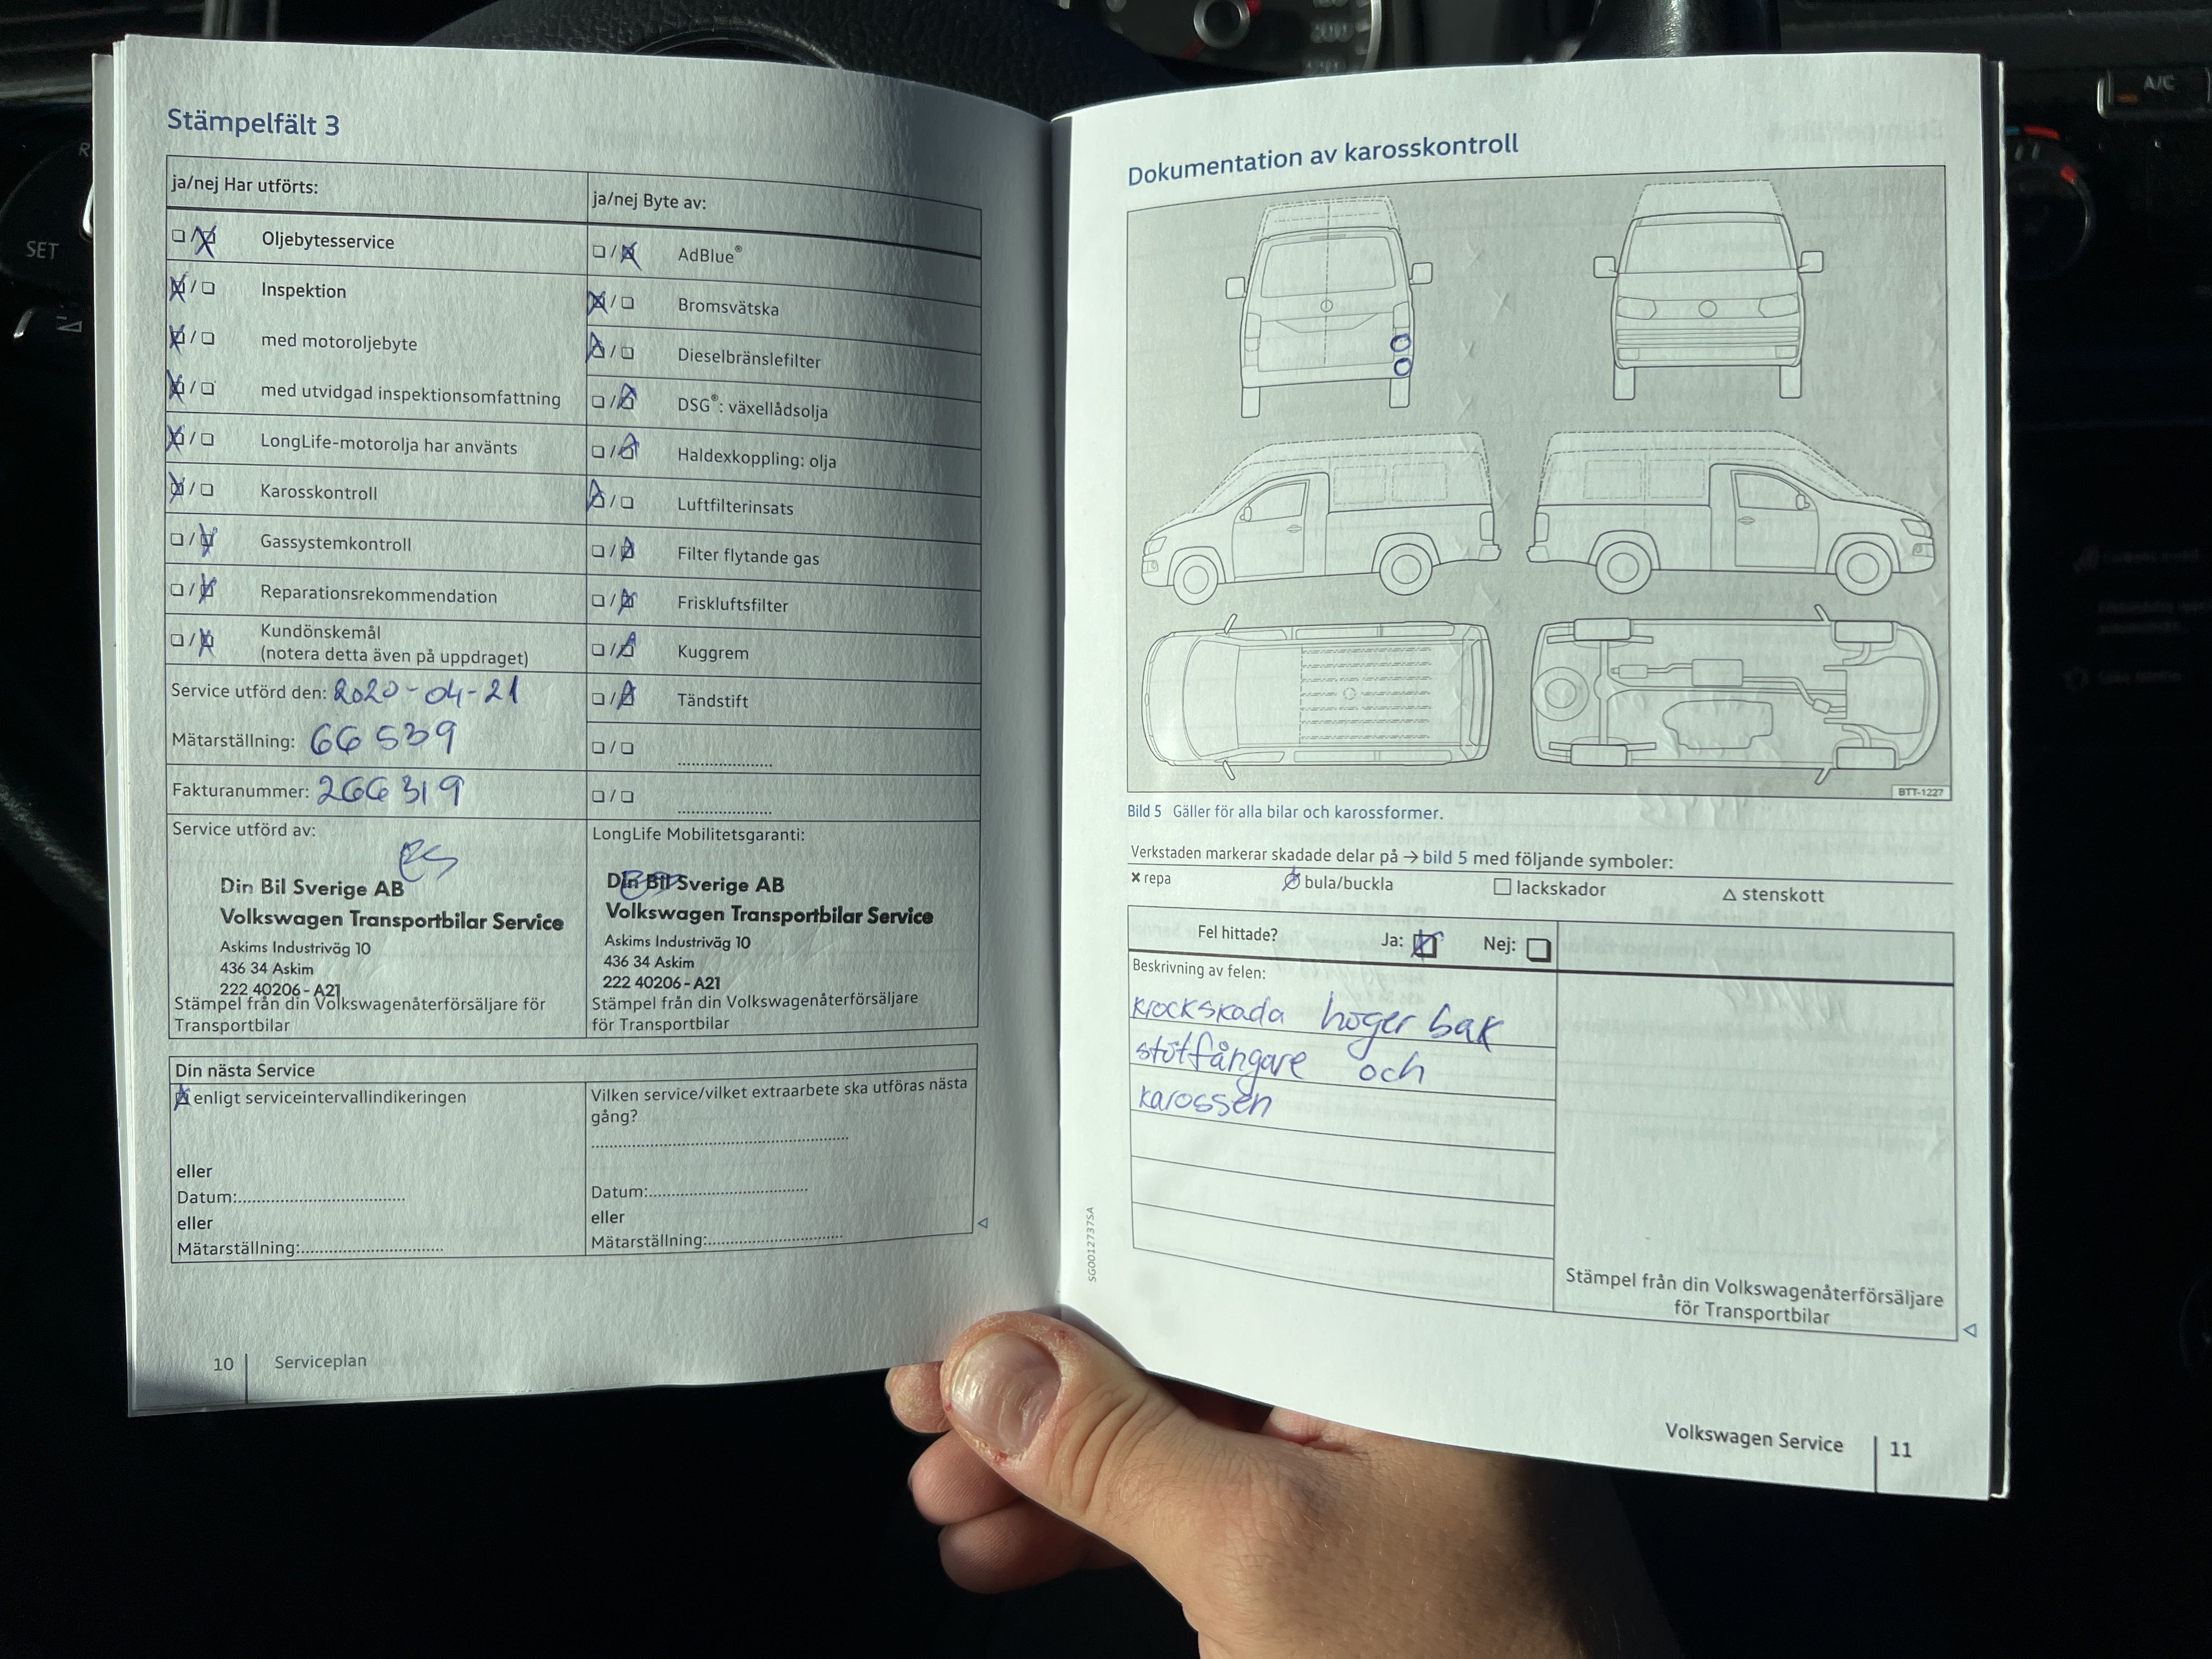 Stämpelfält 3
ja/nej Har utförts:
Oljebytesservice
Inspektion
med motoroljebyte
med utvidgad inspektionsomfattning
LongLife-motorolja har använts
Karosskontroll
Gassystemkontroll
Reparationsrekommendation
Kundönskemål
(notera detta även på uppdraget)
Service utförd den: 2020-04-21
Mätarställning: 66 539
Fakturanummer: 266 319
ja/nej Byte av:
AdBlue®
Bromsvätska
Dieselbränslefilter
DSG®: växellådsolja
Haldexkoppling: olja
Luftfilterinsats
Filter flytande gas
Friskluftsfilter
Kuggrem
Tändstift
Service utförd av:
Din Bil Sverige AB
Volkswagen Transportbilar Service
Askims Industriväg 10
436 34 Askim
222 40206 - A21
Stämpel från din Volkswagenåterförsäljare för
Transportbilar
LongLife Mobilitetsgaranti:
Din Bil Sverige AB
Volkswagen Transportbilar Service
Askims Industriväg 10
436 34 Askim
222 40206 - A21
Stämpel från din Volkswagenåterförsäljare
för Transportbilar
Din nästa Service
enligt serviceintervallindikeringen
eller
Datum:
eller
Mätarställning:
Vilken service/vilket extraarbete ska utföras nästa
gång?
Datum:
eller
Mätarställning:
10 Serviceplan
Dokumentation av karosskontroll
BTT-1227
Bild 5 Gäller för alla bilar och karossformer.
Verkstaden markerar skadade delar på → bild 5 med följande symboler:
× repa bula/buckla lackskador △ stenskott
Fel hittade? Ja: Nej:
Beskrivning av felen:
krockskada höger bak
stötfångare och
karossen
Stämpel från din Volkswagenåterförsäljare
för Transportbilar
SG0012737SA
Volkswagen Service 11
SET
A/C